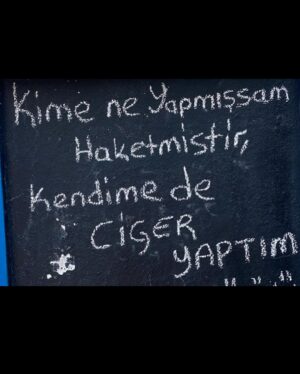 Kime ne Yapmışsam
Haketmiştir,
Kendime de
CİĞER
YAPTIM